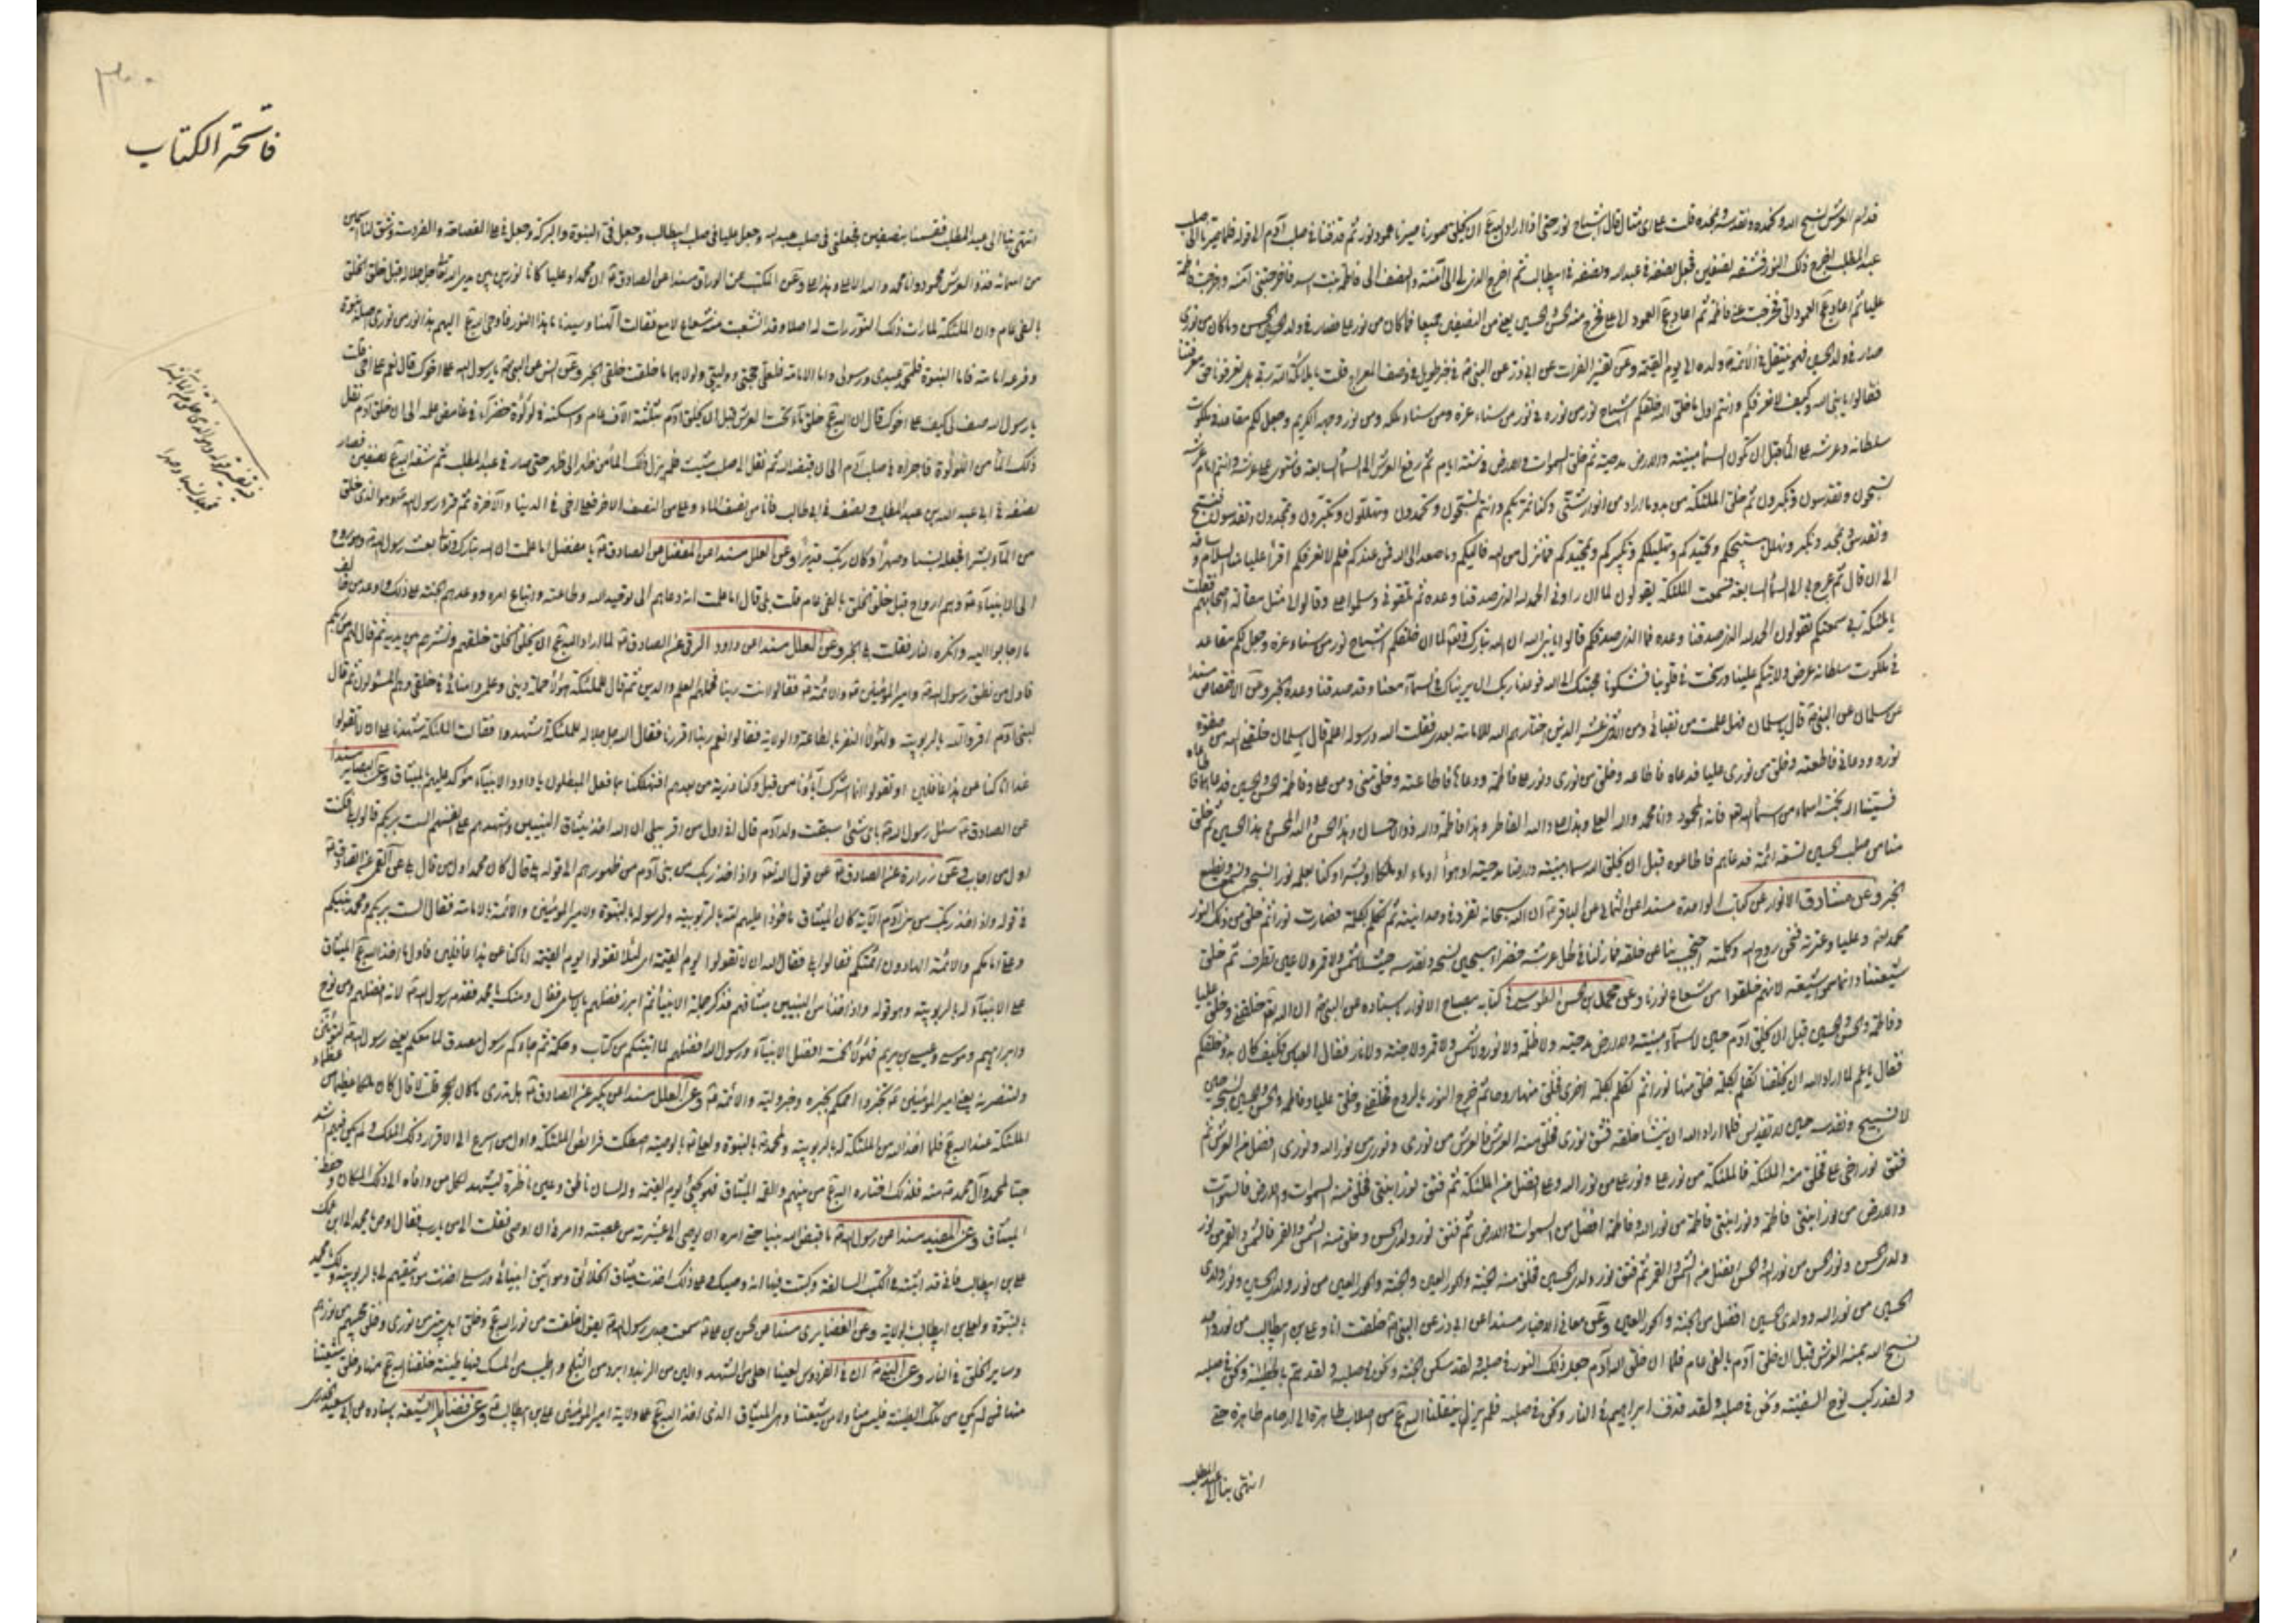 قدام العرش نسبح الله ونحمده ونقدسه ونمجده قلت على اى مثال قال اشباح نور حتى اذا اراد الله ان يخلق صورنا صيرنا عمود نور ثم قذفنا فى صلب آدم الى قوله فلما صيرنا الى صلب
عبد المطلب اخرج ذلك النور فشقه نصفين فجعل نصفه فى عبد الله ونصفه فى ابيطالب ثم اخرج الذى لى الى آمنة والنصف الى فاطمة بنت اسد فاخرجتنى آمنة واخرجت فاطمة
عليا ثم اعاد العمود الى فخرجت منى فاطمة ثم اعاد العمود الى على فخرج منه الحسن والحسين يعنى من النصفين جميعا فما كان من نور على فصار فى ولد الحسن وما كان من نورى
صار فى ولد الحسين فهو ينتقل فى الائمة من ولده الى يوم القيمة وعن تفسير الفرات عن ابى ذر عن النبى فى خبر طويل فى وصف المعراج قلت يا ملائكة ربى هل تعرفونا حق معرفتنا
فقالوا يا نبى الله وكيف لا نعرفكم وانتم اول ما خلق الله خلقكم اشباح نور من نوره فى نور من سناء عزه ومن سناء ملكه ومن نور وجهه الكريم وجعل لكم مقاعد فى ملكوت
سلطانه وعرشه على الماء قبل ان تكون السماء مبنية والارض مدحية ثم خلق السموات والارض فى ستة ايام ثم رفع العرش الى السماء السابعة فاستوى على عرشه وانتم امام عرشه
تسبحون وتقدسون وتكبرون ثم خلق الملئكة من بدو ما اراد من انوار شتى وكنا نمر بكم وانتم تسبحون وتحمدون وتهللون وتكبرون وتمجدون وتقدسون فنسبح
ونقدس ونمجد ونكبر ونهلل بتسبيحكم وتحميدكم وتهليلكم وتكبيركم وتمجيدكم فما نزل من الله فاليكم وما صعد الى الله فمن عندكم فلم لا نعرفكم اقرأ عليا منا السلام
الى ان قال ثم عرج بى الى السماء السابعة فسمعت الملئكة يقولون لما ان راونى الحمد لله الذى صدقنا وعده ثم تلقونى وسلموا على وقالوا لى مثل مقالة اصحابهم فقلت
يا ملئكة ربى سمعتكم تقولون الحمد لله الذى صدقنا وعده فما الذى صدقكم قالوا يا نبى الله ان الله تبارك وتعالى لما ان خلقكم اشباح نور من سناء عزه وجعل لكم مقاعد
فى ملكوت سلطانه عرض ولايتكم علينا ورسخت فى قلوبنا فشكونا محبتك الى الله فوعدنا ربك ان يريناك فى السماء معنا وقد صدقنا وعده الخبر وعن الاختصاص مسندا
عن سلمان عن النبى قال يا سلمان فهل علمت من نقبائى ومن الاثنى عشر الذين اختارهم الله للامامة بعدى فقلت الله ورسوله اعلم قال يا سلمان خلقنى الله من صفوة
نوره ودعانى فاطعته وخلق من نورى عليا فدعاه فاطاعه وخلق من نورى ونور على فاطمة ودعاها فاطاعته وخلق منى ومن على وفاطمة الحسن والحسين فدعاهما فاطاعاه
فسمينا الله بخمسة اسماء من اسمائه فالله المحمود وانا محمد والله العلى وهذا على والله الفاطر وهذه فاطمة والله ذو الاحسان وهذا الحسن والله المحسن وهذا الحسين ثم خلق
منا من صلب الحسين تسعة ائمة فدعاهم فاطاعوه قبل ان يخلق الله سماء مبنية وارضا مدحية او هواء او ماء او ملكا او بشرا وكنا بعلمه نورا نسبحه ونسمع ونطيع
الخبر وعن مشارق الانوار عن كتاب الواحدة مسندا عن الثمالى عن الباقر ان الله سبحانه تفرد فى وحدانيته ثم تكلم بكلمة فصارت نورا ثم خلق من ذلك النور
محمدا وعليا وعترته فنحن روح الله وكلمته احتجب بنا عن خلقه فما زلنا فى ظل عرشه خضراء مسبحين نسبحه ونقدسه حيث لا شمس ولا قمر ولا عين تطرف ثم خلق
شيعتنا وانما سموا شيعة لانهم خلقوا من شعاع نورنا وعن محمد بن الحسن الطوسى فى كتابه مصباح الانوار باسناده عن النبى ان الله تعالى خلقنى وخلق عليا
وفاطمة والحسن والحسين قبل ان يخلق آدم حين لا سماء مبنية ولا ارض مدحية ولا ظلمة ولا نور ولا شمس ولا قمر ولا جنة ولا نار فقال العباس فكيف كان بدو خلقكم
فقال يا عم لما اراد الله ان يخلقنا تكلم بكلمة خلق منها نورا ثم تكلم بكلمة اخرى فخلق منها روحا ثم مزج النور بالروح فخلقنى وخلق عليا وفاطمة والحسن والحسين فكنا نسبحه حين
لا تسبيح ونقدسه حين لا تقديس فلما اراد الله ان ينشأ خلقه فتق نورى فخلق منه العرش فالعرش من نورى ونورى من نور الله ونورى افضل من العرش ثم
فتق نور اخى على فخلق منه الملئكة فالملئكة من نور على ونور على من نور الله وعلى افضل من الملئكة ثم فتق نور ابنتى فخلق منه السموات والارض فالسموات
والارض من نور ابنتى فاطمة ونور ابنتى فاطمة من نور الله وفاطمة افضل من السموات والارض ثم فتق نور ولدى الحسن وخلق منه الشمس والقمر فالشمس والقمر من نور
ولدى الحسن ونور الحسن من نور الله والحسن افضل من الشمس والقمر ثم فتق نور ولدى الحسين فخلق منه الجنة والحور العين والجنة والحور العين من نور ولدى الحسين ونور ولدى
الحسين من نور الله وولدى الحسين افضل من الجنة والحور العين وعن معانى الاخبار مسندا عن ابى ذر عن النبى خلقت انا وعلى بن ابيطالب من نور واحد
نسبح الله يمنة العرش قبل ان خلق آدم بالفى عام فلما ان خلق الله آدم جعل ذلك النور فى صلبه ولقد سكن الجنة ونحن فى صلبه ولقد هم بالخطيئة ونحن فى صلبه
ولقد ركب نوح السفينة ونحن فى صلبه ولقد قذف ابراهيم فى النار ونحن فى صلبه فلم يزل ينقلنا الله من اصلاب طاهرة الى ارحام طاهرة حتى
انتهى بنا الى عبد المطلب
فاتحة الكتاب
انتهى بنا الى عبد المطلب فقسمنا بنصفين فجعلنى فى صلب عبد الله وجعل عليا فى صلب ابيطالب وجعل فى النبوة والبركة وجعل فى على الفصاحة والفروسة وشق لنا اسمين
من اسمائه فذو العرش محمود وانا محمد والله الاعلى وهذا على وعن المكتب عن الوراق مسندا عن الصادق ان محمدا وعليا كانا نورا بين يدى الله جل جلاله قبل خلق الخلق
بالفى عام وان الملئكة لما رات ذلك النور رات له اصلا وقد انشعب منه شعاع لامع فقالت الهنا وسيدنا ما هذا النور فاوحى الله اليهم هذا نور من نورى اصله نبوة
وفرعه امامة فاما النبوة فلمحمد عبدى ورسولى واما الامامة فلعلى حجتى ووليى ولولاهما ما خلقت خلقى الخبر وعن انس عن النبى يا رسول الله على اخوك قال نعم على اخى قلت
يا رسول الله صف لى كيف على اخوك قال ان الله خلق ماء تحت العرش قبل ان يخلق آدم بثلثة آلاف عام واسكنه فى لؤلؤة خضراء فى غامض علمه الى ان خلق آدم نقل
ذلك الماء من اللؤلؤة فاجراه فى صلب آدم الى ان قبضه الله ثم نقل الى صلب شيث فلم يزل ذلك الماء من ظهر الى ظهر حتى صار فى عبد المطلب ثم شقه الله نصفين فصار
نصفه فى ابى عبد الله بن عبد المطلب ونصف فى ابى طالب فانا من نصف الماء وعلى من النصف الاخر فعلى اخى فى الدنيا والآخرة ثم قرء رسول الله وهو الذى خلق
من الماء بشرا فجعله نسبا وصهرا وكان ربك قديرا وعن العلل مسندا عن المفضل عن الصادق يا مفضل اما علمت ان الله تبارك وتعالى بعث رسول الله وهو روح
الى الانبياء وهم ارواح قبل خلق الخلق بالفى عام قلت بلى قال اما علمت انه دعاهم الى توحيد الله وطاعته واتباع امره ووعدهم الجنة على ذلك واوعد من خالف
ما اجابوا اليه وانكره النار فقلت بلى الخبر وعن العلل مسندا عن داود الرقى عن الصادق لما اراد الله ان يخلق الخلق خلقهم ونشرهم بين يديه ثم قال لهم من ربكم
فاول من نطق رسول الله وامير المؤمنين والائمة فقالوا انت ربنا فحملهم العلم والدين ثم قال للملئكة هؤلاء حملة دينى وعلمى وامنائى فى خلقى وهم المسئولون ثم قال
لبنى آدم اقروا لله بالربوبية ولهؤلاء النفر بالطاعة والولاية فقالوا نعم ربنا اقررنا فقال الله جل جلاله للملئكة اشهدوا فقالت الملئكة شهدنا على ان لا تقولوا
غدا انا كنا عن هذا غافلين او تقولوا انما اشرك آباؤنا من قبل وكنا ذرية من بعدهم افتهلكنا بما فعل المبطلون يا داود الانبياء مؤكد عليهم الميثاق وعن البصاير مسندا
عن الصادق سئل رسول الله باى شئ سبقت ولد آدم قال انى اول من اقر ببلى ان الله اخذ ميثاق النبيين واشهدهم على انفسهم الست بربكم قالوا بلى فكنت
اول من اجاب وعن زرارة عن الصادق عن قول الله تعالى واذ اخذ ربك من بنى آدم من ظهورهم الى قوله بلى قال كان محمد اول من قال بلى وعن القمى عن الصادق
فى قوله واذ اخذ ربك من بنى آدم الآية كان الميثاق ماخوذا عليهم لله بالربوبية ولرسوله بالنبوة ولامير المؤمنين والائمة بالامامة فقال الست بربكم ومحمد نبيكم
وعلى امامكم والائمة الهادون ائمتكم فقالوا بلى فقال الله ان تقولوا يوم القيمة اى لئلا تقولوا يوم القيمة انا كنا عن هذا غافلين فاول ما اخذ الله الميثاق
على الانبياء له بالربوبية وهو قوله واذ اخذنا من النبيين ميثاقهم فذكر جملة الانبياء ثم ابرز افضلهم بالاسامى فقال ومنك يا محمد فقدم رسول الله لانه افضلهم ومن نوح
وابراهيم وموسى وعيسى بن مريم فهؤلاء الخمسة افضل الانبياء ورسول الله افضلهم لما اتيتكم من كتاب وحكمة ثم جاءكم رسول مصدق لما معكم يعنى رسول الله لتؤمنن به
ولتنصرنه يعنى امير المؤمنين تخبروا اممكم بخبره وخبر وليه والائمة وعن العلل مسندا عن بكير عن الصادق هل تدرى ما كان الحجر قلت لا قال كان ملكا عظيما من عظماء
الملئكة عند الله فلما اخذ الله من الملئكة له بالربوبية ولمحمد بالنبوة ولعلى بالوصية اصطكت فرائص الملئكة واول من اسرع الى الاقرار ذلك الملك ولم يكن فيهم اشد
حبا لمحمد وآل محمد منه فلذلك اختاره الله من بينهم والقمه الميثاق فهو يجئ يوم القيمة وله لسان ناطق وعين ناظرة ليشهد لكل من وافاه الى ذلك المكان وحفظ
الميثاق وعن المفيد مسندا عن رسول الله ما قبض الله نبيا حتى امره ان يوصى الى عشيرته من عصبته وامرنى ان اوصى فقلت الى من يا رب فقال اوص يا محمد الى ابن عمك
على بن ابيطالب فانى قد اثبته فى الكتب السالفة وكتبت فيها انه وصيك وعلى ذلك اخذت ميثاق الخلائق ومواثيق انبيائى ورسلى اخذت مواثيقهم لى بالربوبية ولك يا محمد
بالنبوة ولعلى بن ابيطالب بالولاية وعن الغضايرى مسندا عن الحسن بن على سمعت جدى رسول الله يقول خلقت من نور الله وخلق اهل بيتى من نورى وخلق محبيهم من نورهم
وساير الخلق فى النار وعن النبى ان فى الفردوس لعينا احلى من الشهد والين من الزبد وابرد من الثلج واطيب من المسك فيها طينة خلقنا الله منها وخلق شيعتنا
منها فمن لم يكن من تلك الطينة فليس منا ولا من شيعتنا وهى الميثاق الذى اخذ الله على ولاية امير المؤمنين على بن ابيطالب وعن فضايل الشيعة باسناده عن ابى سعيد الخدرى